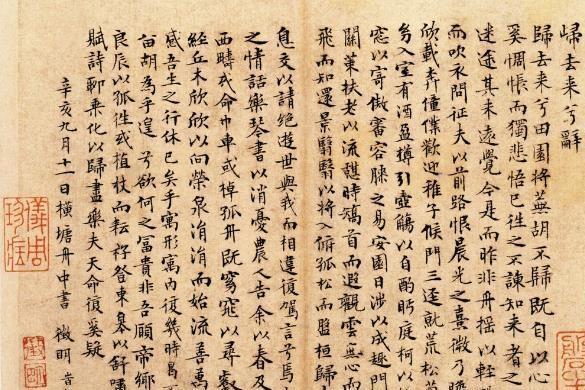 歸去來兮辭
歸去來兮田園將蕪胡不歸既自以心
奚惆悵而獨悲悟已往之不諫知來者之
迷途其未遠覺今是而昨非舟搖以輕
而吹衣問征夫以前路恨晨光之熹微乃瞻
欣載奔僮僕歡迎稚子候門三逕就荒松
幼入室有酒盈樽引壺觴以自酌眄庭柯以
窓以寄傲審容膝之易安園日涉以成趣門
關策扶老以流憩時矯首而遐觀雲無心而
飛而知還景翳翳以將入撫孤松而盤桓歸
息交以請絕遊世與我而相違復駕言兮焉
之情話樂琴書以消憂農人告余以春及
西疇或命巾車或棹孤舟既窈窕以尋壑
經丘木欣欣以向榮泉涓涓而始流善萬
感吾生之行休已矣乎寓形寓內復幾時曷
留胡為乎遑兮欲何之富貴非吾願帝鄉
良辰以孤往或植杖而耘耔登東皋以舒嘯
賦詩聊乘化以歸盡樂夫天命復奚疑
辛亥九月十一日橫塘舟中書 徵明
儀周珍藏